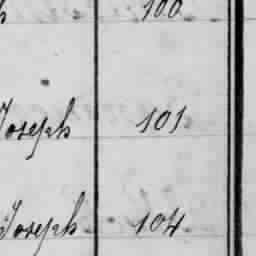 100
Joseph 101
Joseph 104